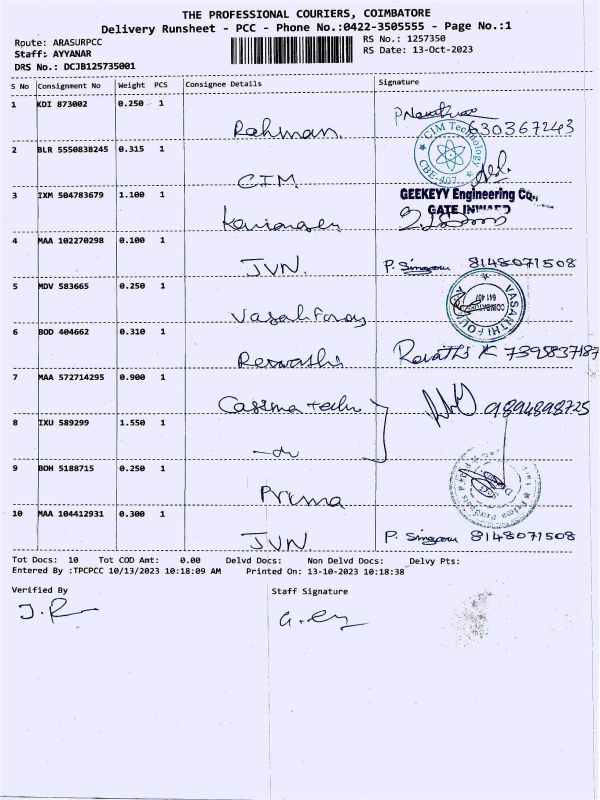 THE PROFESSIONAL COURIERS, COIMBATORE
Delivery Runsheet - PCC - Phone No.:0422-3505555 - Page No.:1
Route: ARASURPCC
RS No.: 1257350
Staff: AYYANAR
RS Date: 13-Oct-2023
DRS No.: DCJB125735001
S No Consignment No Weight PCS Consignee Details Signature
1 KDI 873002 0.250 1
Rahman 630367243
CIM Technology
CBE-407
2 BLR 5550838245 0.315 1
CIM
3 IXM 504783679 1.100 1
GEEKEYY Engineering Co.,
GATE INWARD
4 MAA 102270298 0.100 1
JVN. P. 8148071508
5 MDV 583665 0.250 1
VASANTHI
COIMBATORE
641 407
6 BOD 404662 0.310 1
Revathi K 7395837187
7 MAA 572714295 0.900 1
9894898725
8 IXU 589299 1.550 1
-do
9 BOH 5188715 0.250 1
Prima
10 MAA 104412931 0.300 1
JVN. P. 8148071508
Tot Docs: 10 Tot COD Amt: 0.00 Delvd Docs: Non Delvd Docs: Delvy Pts:
Entered By :TPCPCC 10/13/2023 10:18:09 AM Printed On: 13-10-2023 10:18:38
Verified By Staff Signature